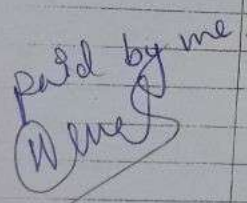 paid by me